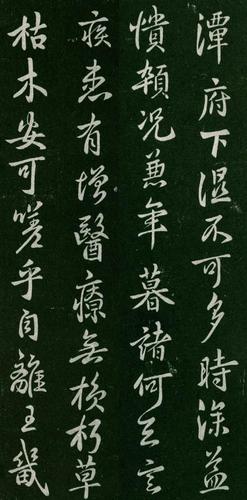 潭府下濕不可多時深益
憒頽况兼年暮諸何足言
疾患有增醫療無損朽草
枯木安可嗟乎自離王畿